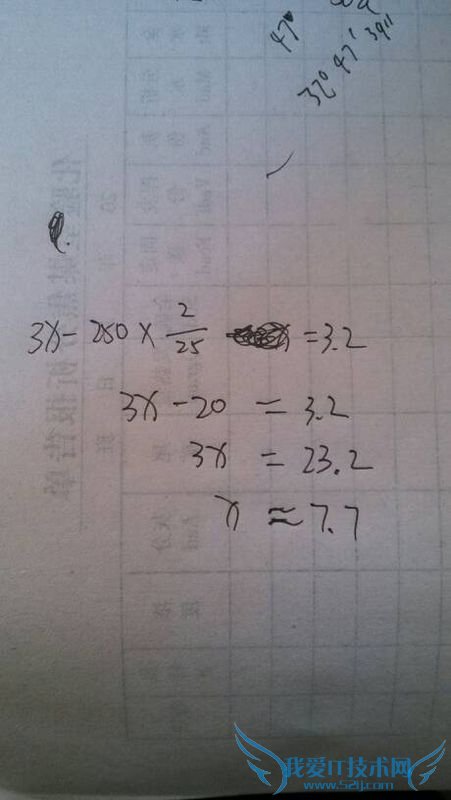 47°
32° 47′ 39″
3x - 250 × 2/25 = 3.2
3x - 20 = 3.2
3x = 23.2
x ≈ 7.7
我爱IT技术网
www.52ij.com